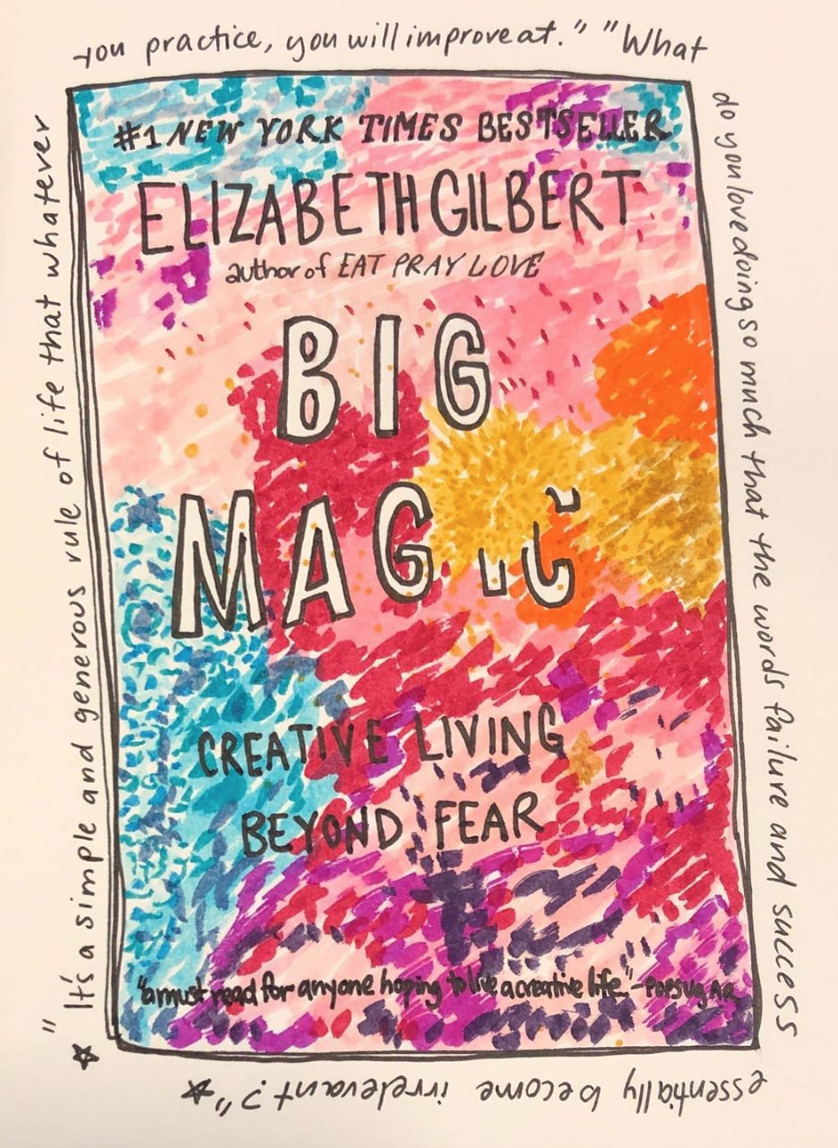 "It's a simple and generous rule of life that whatever
you practice, you will improve at." "What
do you love doing so much that the words failure and success
essentially become irrelevant?"
#1 NEW YORK TIMES BESTSELLER
ELIZABETH GILBERT
author of EAT PRAY LOVE
BIG
MAGIC
CREATIVE LIVING
BEYOND FEAR
"a must read for anyone hoping to live a creative life." -POPSUGAR